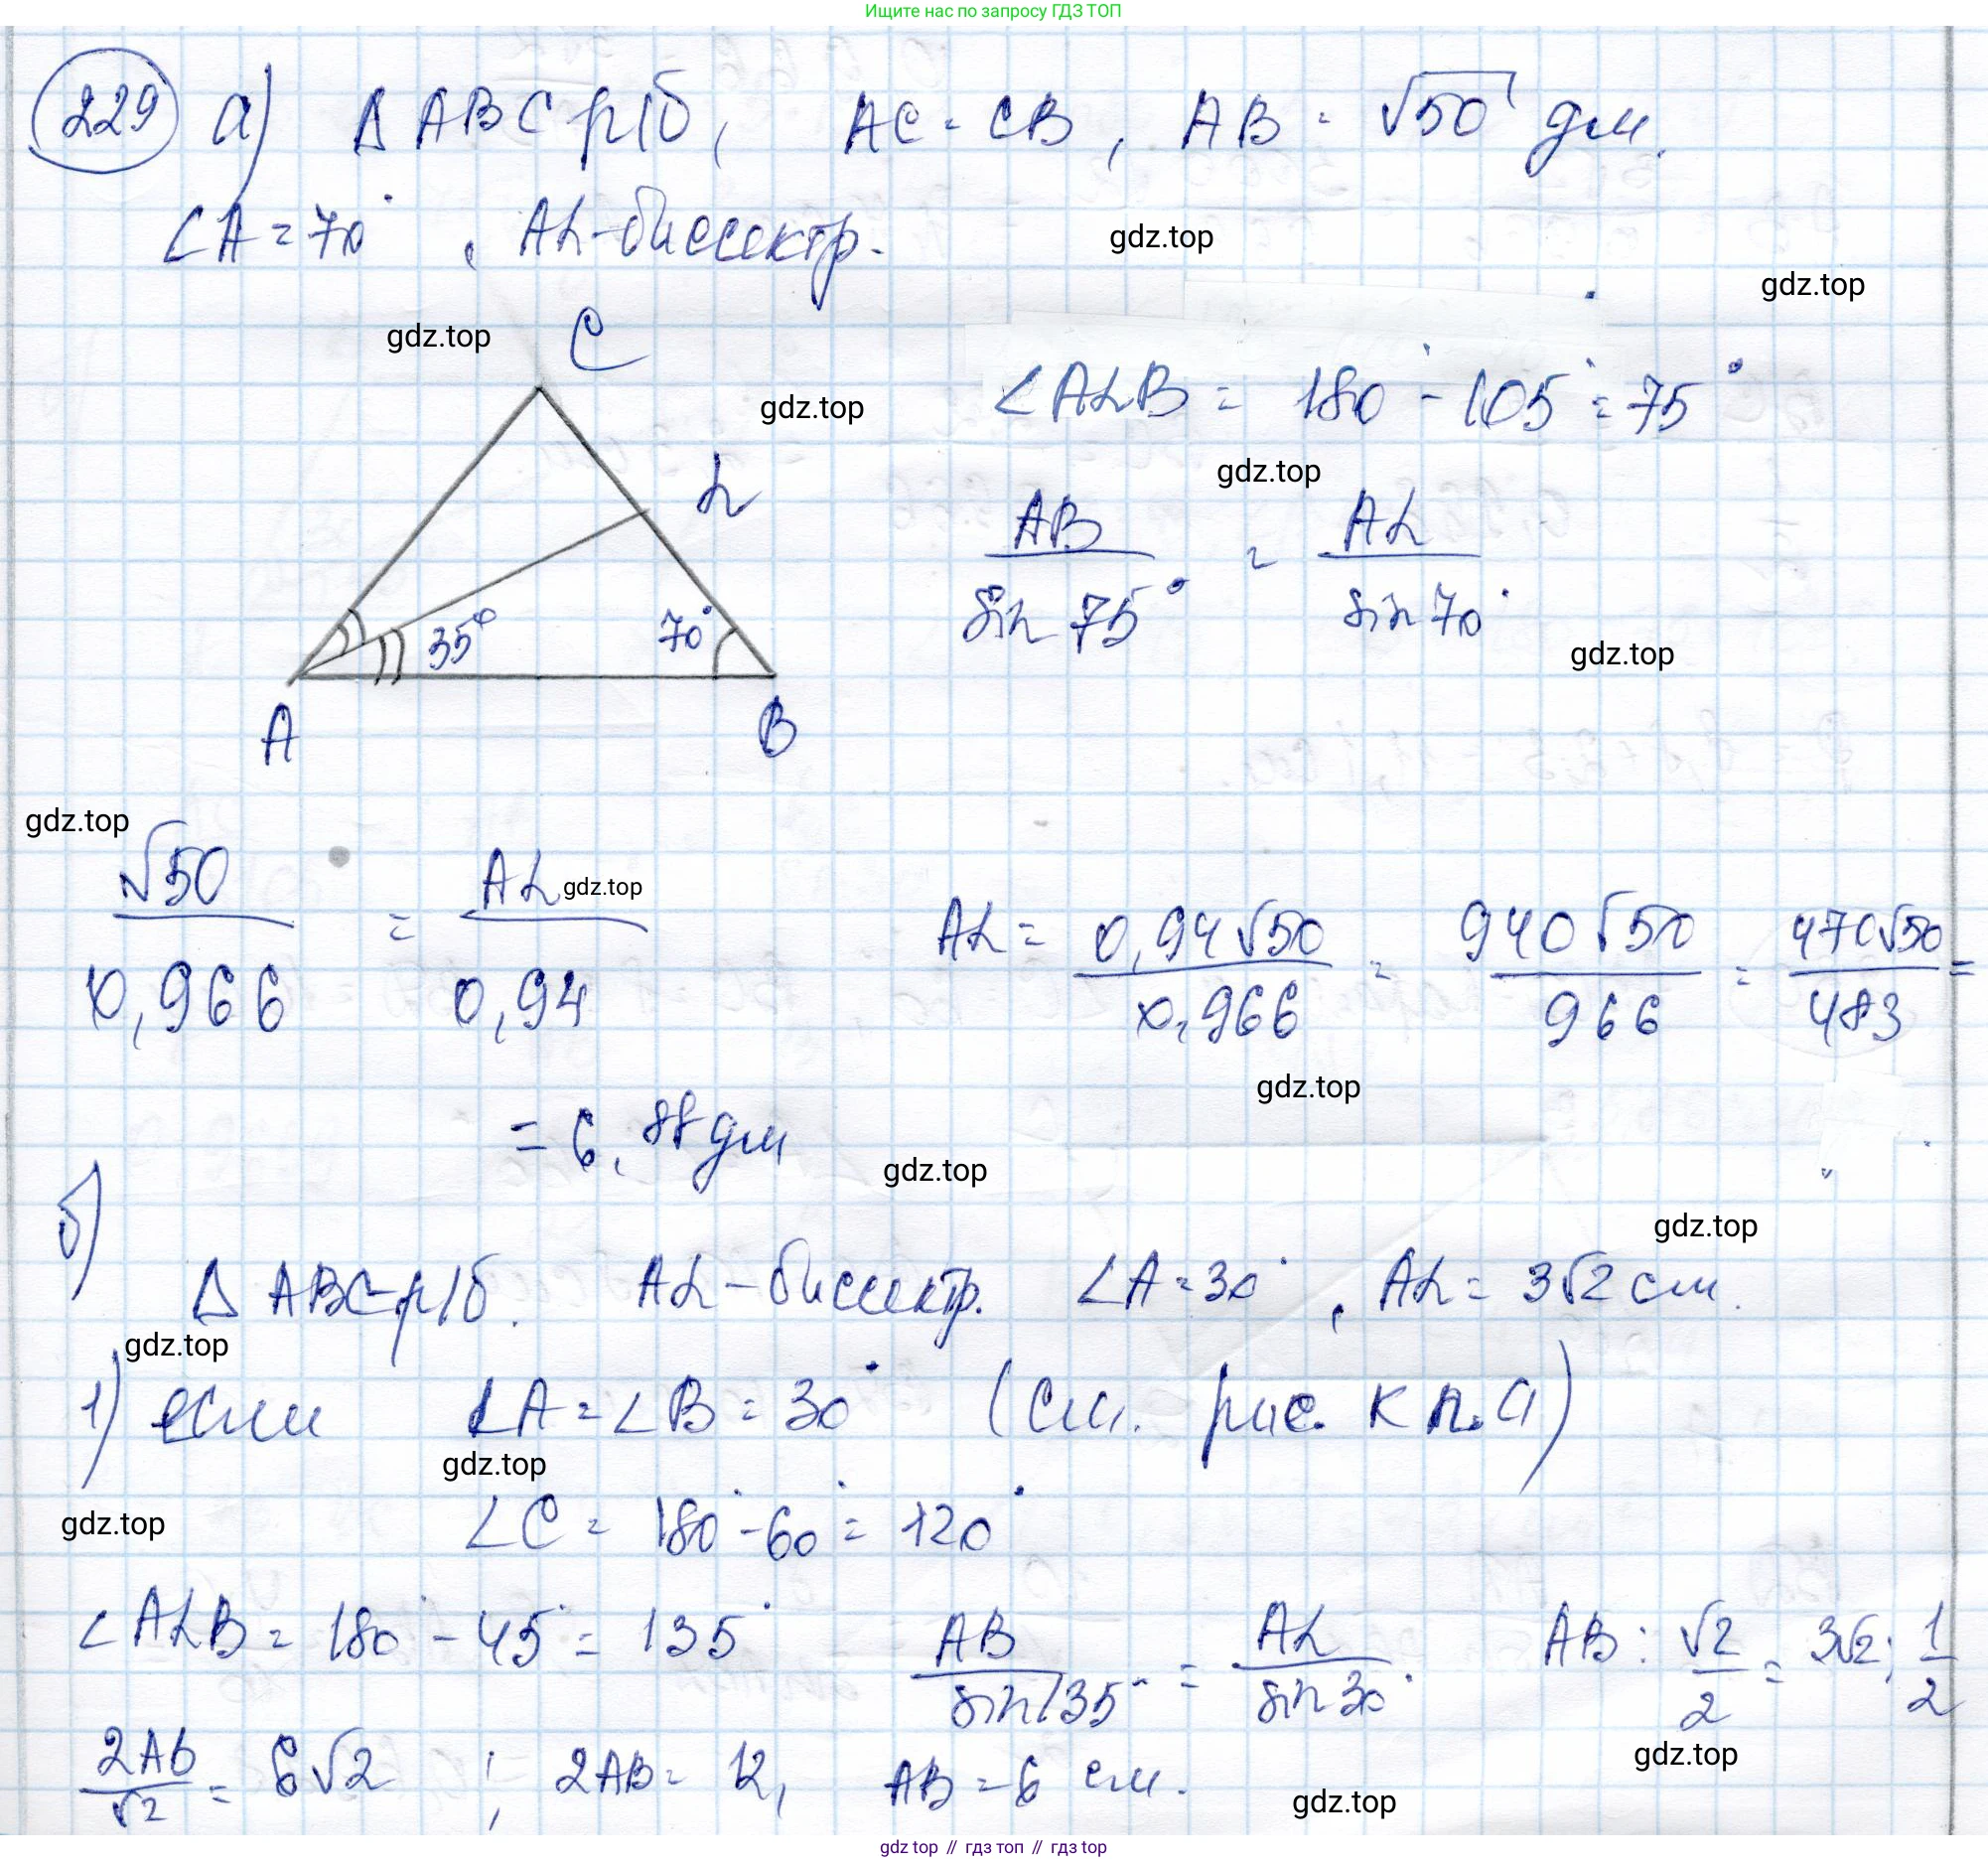 Ищите нас по запросу ГДЗ ТОП
229 а) Δ ABC р/б, AC = CB, AB = √50 дм.
∠A = 70°, AL - биссектр.
gdz.top
gdz.top
gdz.top
C
∠ALB = 180° - 105° = 75°
gdz.top
L
gdz.top
AB/sin 75° = AL/sin 70°
35° 70°
gdz.top
A B
gdz.top
√50/0,966 = AL/0,94 AL = 0,94√50/0,966 = 940√50/966 = 470√50/483 =
gdz.top
gdz.top
= 6,88 дм
gdz.top
б)
gdz.top
Δ ABC - р/б. AL - биссектр. ∠A = 30°, AL = 3√2 см.
gdz.top
1) если ∠A = ∠B = 30° (см. рис. к п. а)
gdz.top
∠C = 180° - 60° = 120°
gdz.top
∠ALB = 180° - 45° = 135° AB/sin 135° = AL/sin 30° AB : √2/2 = 3√2 : 1/2
gdz.top
2AB/√2 = 6√2 ; 2AB = 12, AB = 6 см.
gdz.top
gdz top // гдз топ // gdz top